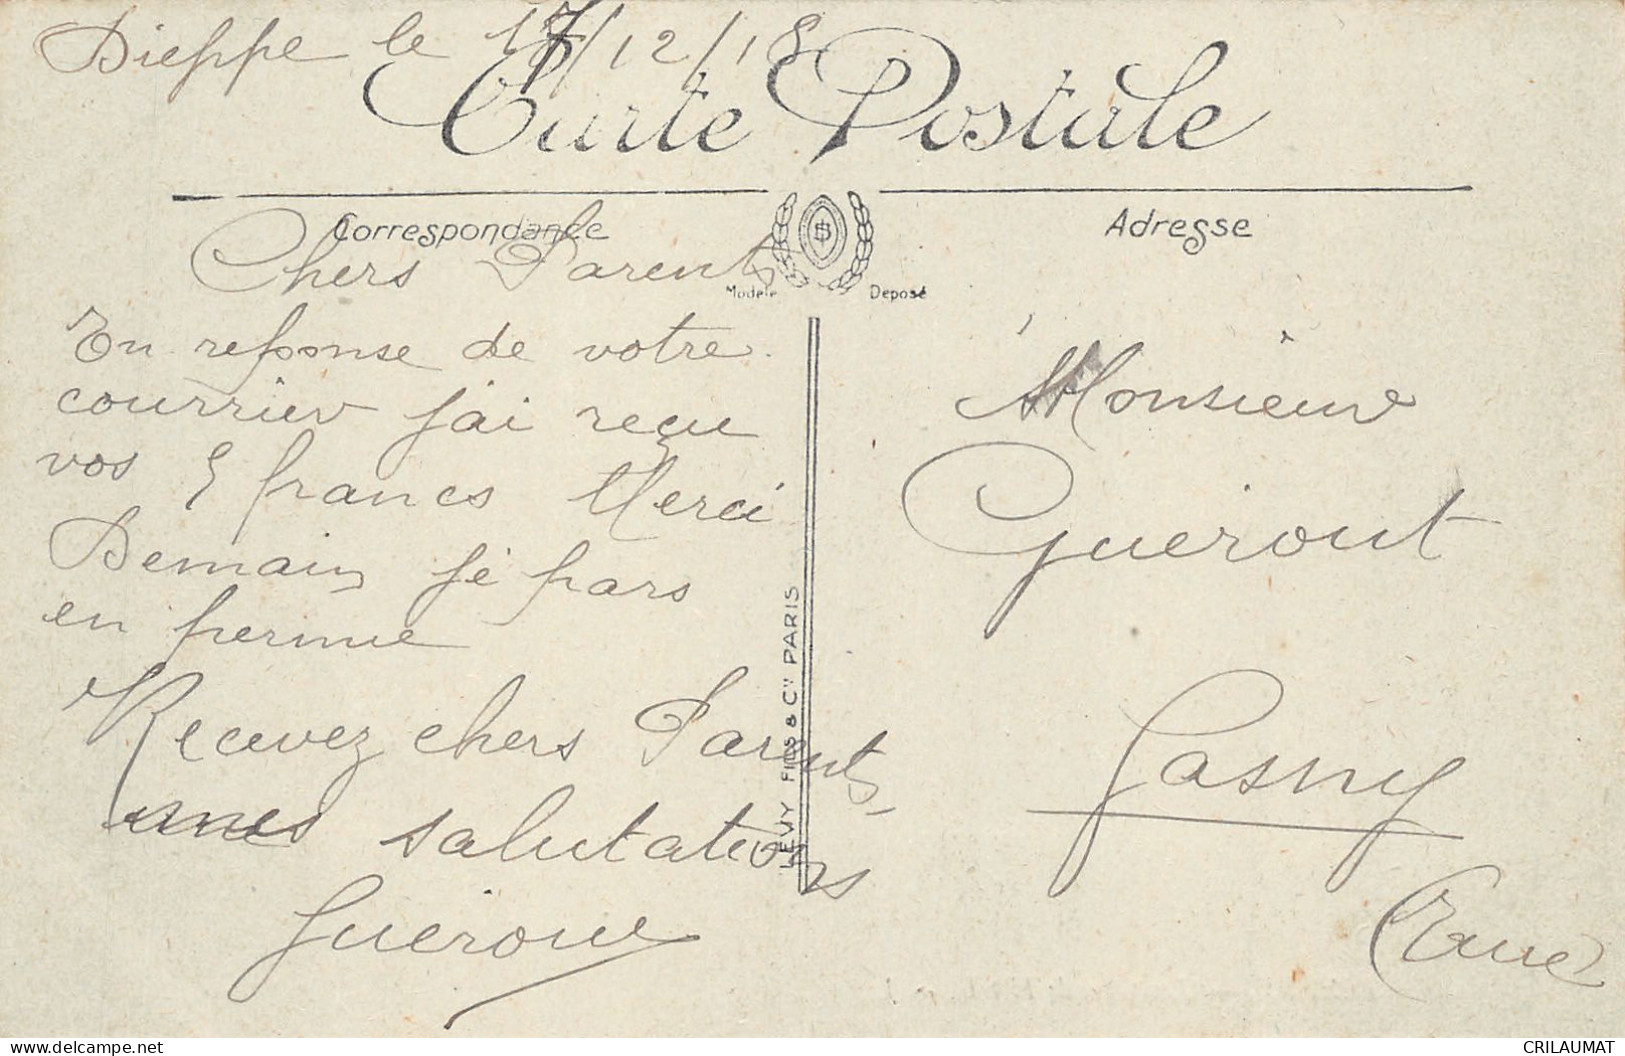 Dieppe le 17/12/18
Carte Postale
Correspondance
Adresse
Modèle Déposé
Chers Parents
En reponse de votre
courrier j'ai reçu
vos 5 francs Merci
Demain je pars
en perme
Recevez chers Parents
mes salutations
Guéroue
LEVY FILS & Cie PARIS
Monsieur
Guerout
Gasny
(Eure)
CRILAUMAT